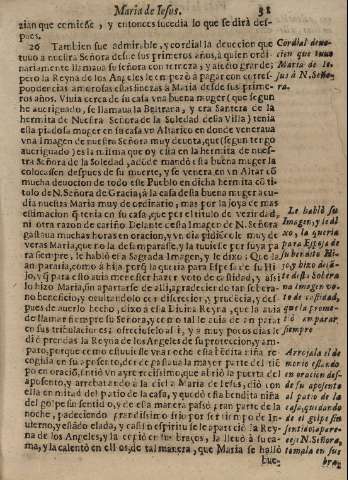 Maria de Iesus. 31
zian que comiesse, y entonces sucedia lo que se dirà des-
pues.
26 Tambien fue admirable, y cordial la devocion que
tuvo à Nuestra Señora desde sus primeros años, à quien ordi-
nariamente llamava su Señora con terneza, y afecto grande;
pero la Reyna de los Angeles le empezò à pagar con corres-
pondencias amorosas estas finezas à Maria desde sus prime-
ros años. Vivia cerca de su casa vna buena muger (que segun
he averiguado, se llamava la Beltrana, y era Santera de la
hermita de Nuestra Señora de la Soledad desta Villa) tenia
esta piadosa muger en su casa vn Altarico en donde veneraua
vna Imagen de nuestra Señora muy devota, que (segun tengo
averiguado) es la misma que oy està en la hermita de nues-
tra Señora de la Soledad, adonde mandò esta buena muger la
colocassen despues de su muerte, y se venera en vn Altar cõ
mucha devocion de todo este Pueblo en dicha hermita cõ ti-
tulo de N. Señora de Gracia; à la casa desta buena muger acu-
dia nuestra Maria muy de ordinario, mas por la joya de mas
estimacion q̃ tenia en su casa, que por el titulo de vezindad,
ni otra razon de cariño. Delante desta Imagen de N. Señora
gastava muchas horas en oracion, y vn dia pidiòle muy de
veras Maria, que no la desamparasse, y la tuviesse por suya pa-
ra siempre, le hablò esta Sagrada Imagen, y le dixo: Que la
ampararia, como à hija
lo hizo Maria, sin apartarse de alli, agradeciendo tan sobera-
no beneficio, y ocultandolo con discrecion, y prudẽcia, y des-
pues de averlo hecho, dixo à esta Divina Reyna, que la avia
de llamar siempre su Señora, y como tal le avia de amparar
en sus tribulaciones: ofreciòselo assi, y à muy pocos dias le
diò prendas la Reyna de los Angeles de su proteccion, y am-
paro, porque como estuviesse de noche esta bendita niña re-
cogida en su aposento, donde passava la mayor parte del tiẽ-
po en oraciõ, sintiò vn ayre recissimo, que abriò la puerta del
aposento, y arrebatando à la dicha Maria de Iesus, diò con
ella en mitad del patio de la casa, y quedò esta bendita niña
del golpe sin sentido, y desta manera passò gran parte de la
noche, padeciendo grandissimo frio por ser tiempo de In-
uierno, y estàdo elada, y casi sin espiritu se le apareciò la Rey-
na de los Angeles, y la cogiò en sus braços, la llevò à su ca-
ma, y la calentò en ellos, de tal manera, que Maria se hallò
bue-
Cordial devo-
cion que tuvo
Maria de Ie-
sus à N. Seño-
ra.
Le hablò su
Imagen, y le di-
xo, la queria
para Esposa de
su bendito Hi-
jo, y hizo
de esta Sobera
na Imagen vo-
to de castidad,
que la prome-
tiò amparar
siempre
Arrojala el de-
monio estando
en oracion des-
de su aposento
al patio de la
casa, quedando
de el golpe sin
sentido; apare-
cese N. Señora,
tomala en sus
bra-